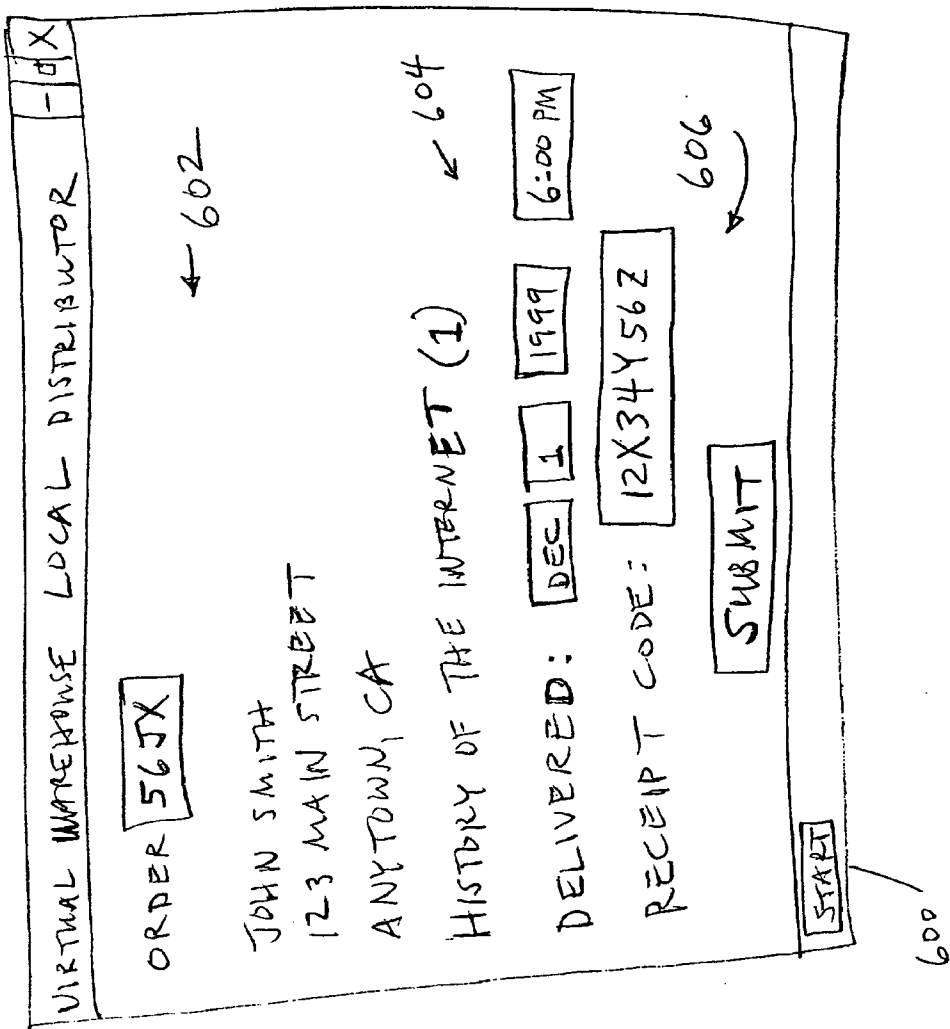 VIRTUAL WAREHOUSE LOCAL DISTRIBUTOR - X
ORDER 56JX
← 602
JOHN SMITH
123 MAIN STREET
ANYTOWN, CA
HISTORY OF THE INTERNET (1)
604
DELIVERED: DEC 1 1999 6:00 PM
RECEIPT CODE: 12X34Y56Z
606
SUBMIT
START
600